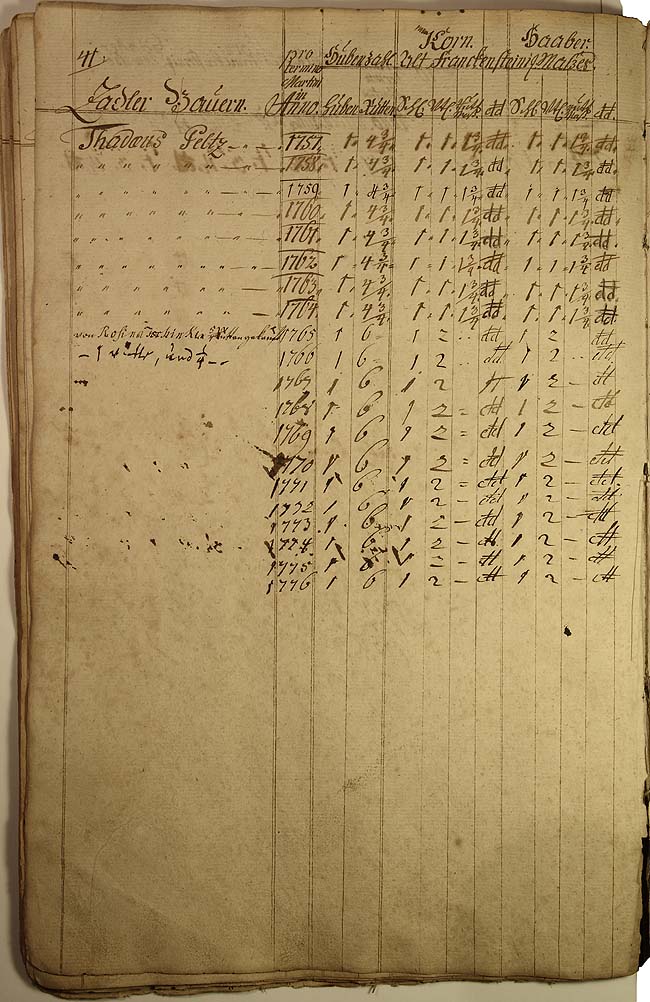 41.
pro termino Martini in Anno. Hubenzahl Korn. Haaber.
Alt Franckensteinig Maßes.
Zadler Bauern. Huben Rutten
Thadæus Peltz 1757. 1. 4 3/4. 1. 1. 1 3/4 dd. 1. 1. 1 3/4 dd.
" " " " " " 1758. 1. 4 3/4. 1. 1. 1 3/4 dd. 1. 1. 1 3/4 dd.
" " " " " " 1759 1. 4 3/4. 1. 1. 1 3/4 dd. 1. 1. 1 3/4 dd
" " " " " " 1760. 1. 4 3/4. 1. 1. 1 3/4 dd. 1. 1. 1 3/4 dd.
" " " " " " 1761. 1. 4 3/4. 1. 1. 1 3/4 dd. 1. 1. 1 3/4 dd.
" " " " " " 1762. 1. 4 3/4. 1. 1. 1 3/4 dd 1. 1. 1 3/4 dd
" " " " " " 1763. 1. 4 3/4. 1. 1. 1 3/4 dd. 1. 1. 1 3/4 dd
" " " " " " 1764. 1. 4 3/4. 1. 1. 1 3/4 dd. 1. 1. 1 3/4 dd
von Rosina 1765 1 6 1 2 dd 1 2 dd
und 1/4 1766 1 6 1 2 dd 1 2 dd
1767 1 6 1 2 dd 1 2 – dd
1768 1 6 1 2 = dd 1 2 – dd
1769 1 6 1 2 = dd 1 2 – dd
1770 1 6 1 2 = dd 1 2 – dd
1771 1 6 1 2 = dd 1 2 – dd
1772 1 6 1 2 – dd 1 2 – dd
1773 1 6 1 2 – dd 1 2 – dd
1774 1 6 1 2 – dd 1 2 – dd
1775 1 6 1 2 – dd 1 2 – dd
1776 1 6 1 2 – dd 1 2 – dd